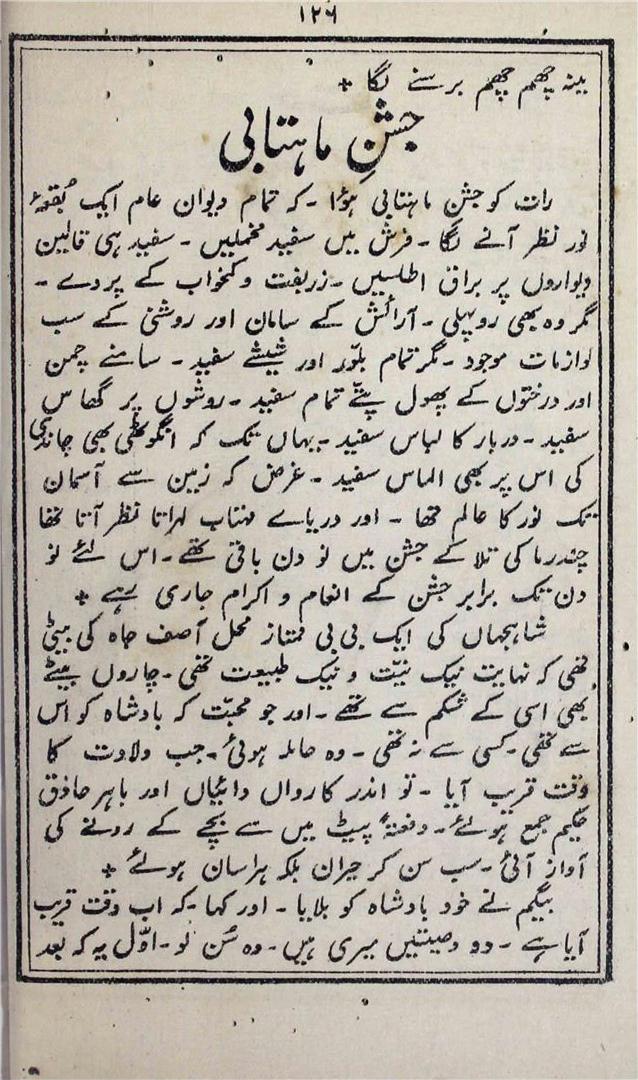 ۱۲۶
مینہ چھم چھم برسنے لگا *
جشنِ ماہتابی
رات کو جشن ماہتابی ہؤا ۔ کہ تمام دیوان عام ایک بُقعۂ
نور نظر آنے لگا ۔ فرش میں سفید مخملیں ۔ سفید ہی قالین
دیواروں پر براق اطلسیں ۔ زربفت و کمخواب کے پردے ۔
مگر وہ بھی روپہلی ۔ آرائش کے سامان اور روشنی کے سب
لوازمات موجود ۔ مگر تمام بلّور اور شیشے سفید ۔ سامنے چمن
اور درختوں کے پھول پتّے تمام سفید ۔ روشوں پر گھاس
سفید ۔ دربار کا لباس سفید ۔ یہاں تک کہ انگوٹھی بھی چاندی
کی اس پر بھی الماس سفید ۔ غرض کہ زمین سے آسمان
تک نور کا عالم تھا ۔ اور دریاے مہتاب لہراتا نظر آتا تھا
چندرما کی تلا کے جشن میں نو دن باقی تھے ۔ اس لئے نو
دن تک برابر جشن کے انعام و اکرام جاری رہے *
شاہجہاں کی ایک بی بی ممتاز محل آصف جاہ کی بیٹی
تھی کہ نہایت نیک نیّت و نیک طبیعت تھی ۔ چاروں بیٹے
بھی اسی کے شکم سے تھے ۔ اور جو محبّت کہ بادشاہ کو اس
سے تھی ۔ کسی سے نہ تھی ۔ وہ حاملہ ہوئی ۔ جب ولادت کا
وقت قریب آیا ۔ تو اندر کارواں دائیاں اور باہر حاذق
حکیم جمع ہوئے ۔ دفعتہً پیٹ میں سے بچے کے رونے کی
آواز آئی ۔ سب سن کر حیران بلکہ ہراسان ہوئے *
بیگم نے خود بادشاہ کو بلایا ۔ اور کہا ۔ کہ اب وقت قریب
آیا ہے ۔ دو وصیتیں میری ہیں ۔ وہ سُن لو ۔ اوّل یہ کہ بعد